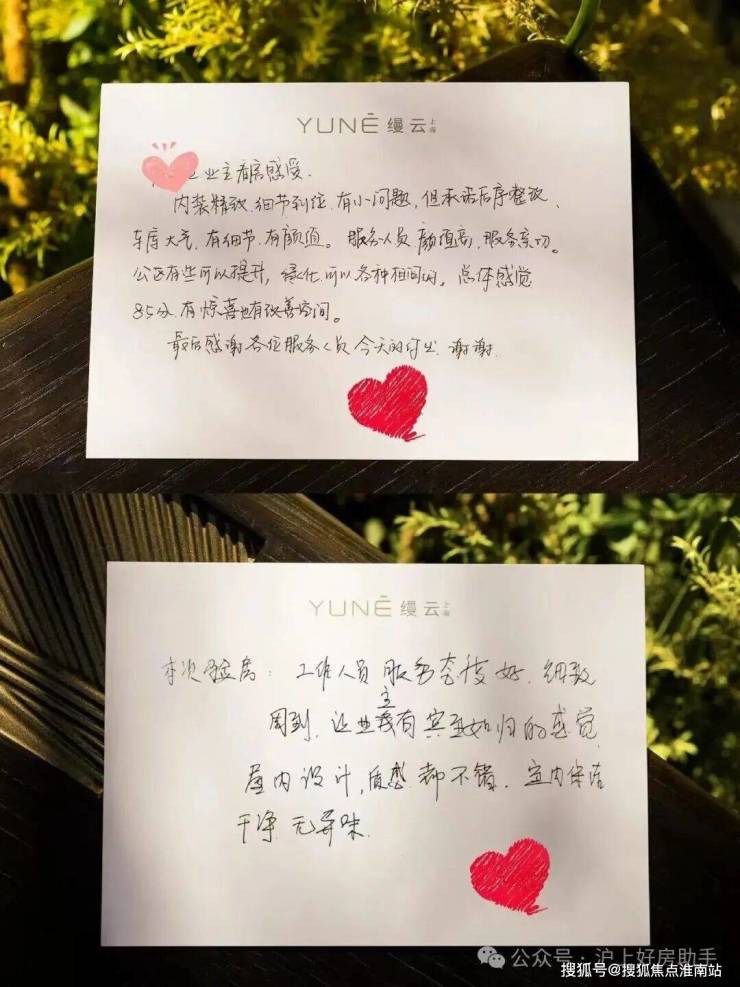 YUNĒ 缦云 上海
业主看房感受.
内装精致.细节到位.有小问题,但承诺后序整改、
车库大气.有细节.有颜值。服务人员颜值高,服务亲切。
公区有些可以提升,绿化可以各种相间的。总体感觉
85分.有惊喜也有改善空间。
最后感谢各位服务人员今天的付出.谢谢.
YUNĒ 缦云 上海
本次验房:工作人员服务态度好.细致
周到.让业主有宾至如归的感觉
屋内设计,质感都不错.室内保洁
干净无异味.
公众号·沪上好房助手
搜狐号@搜狐焦点淮南站